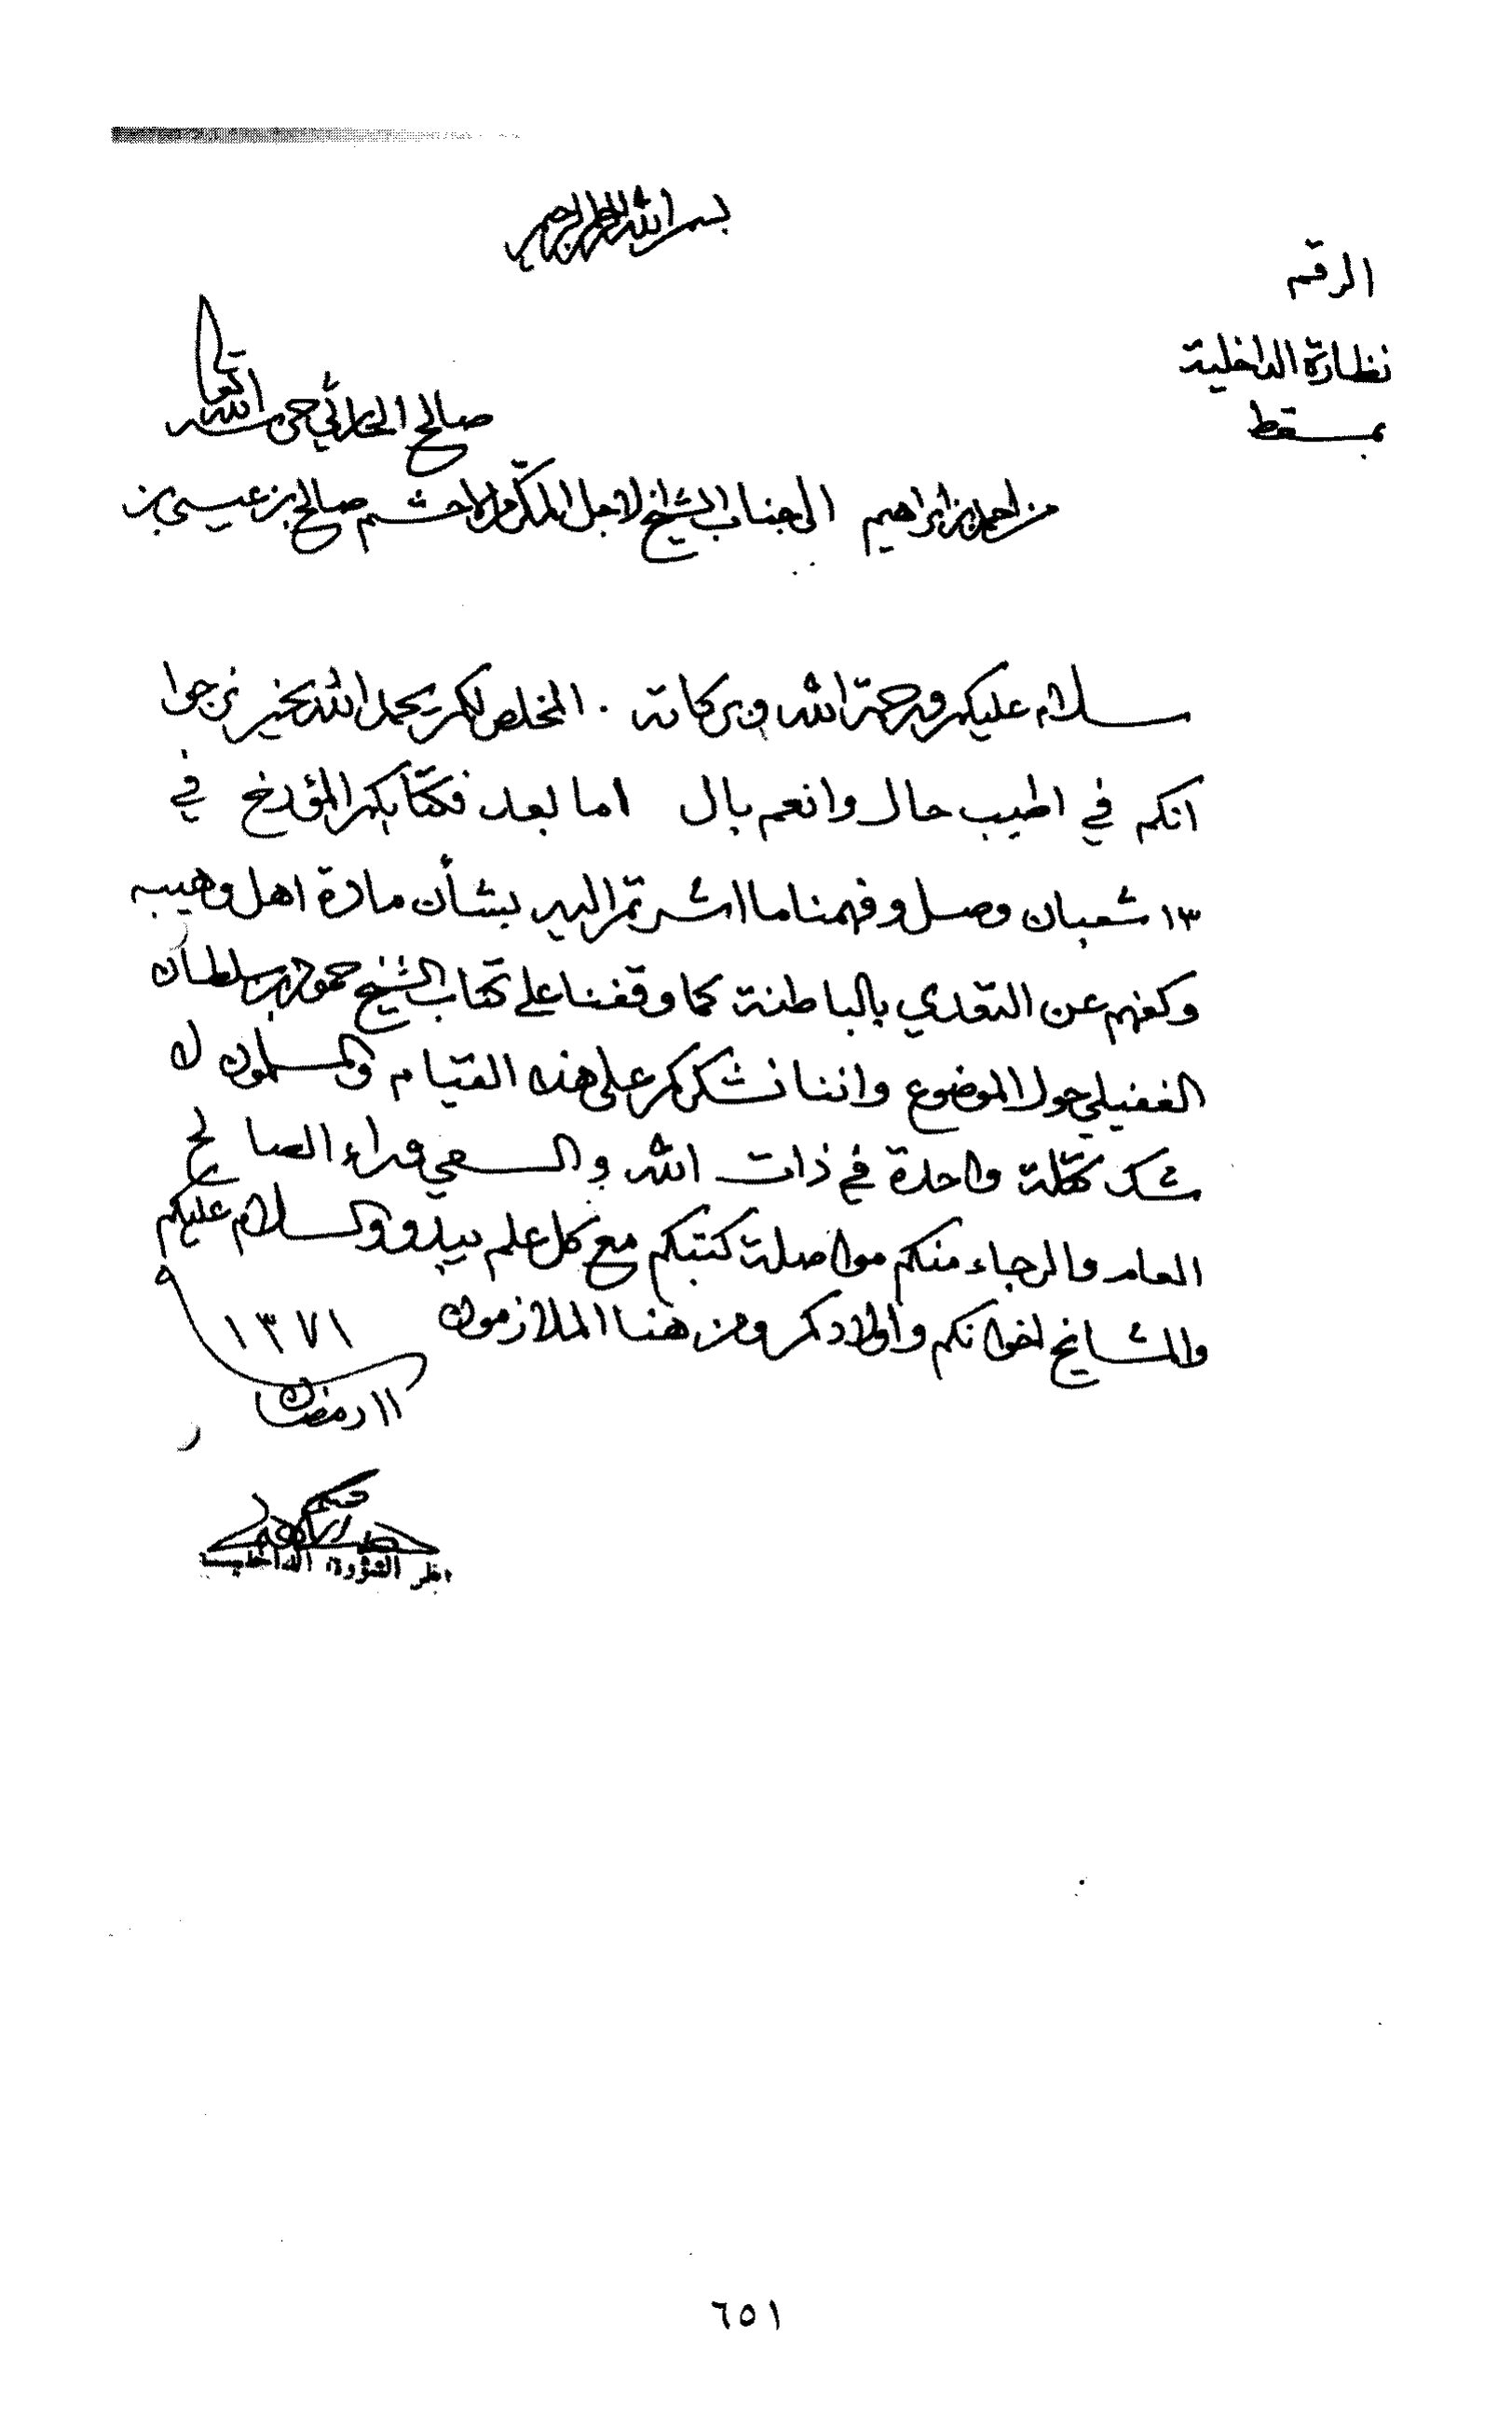 بسم الله الرحمن الرحيم
الرقم
نظارة الداخلية
بمسقط
من احمد بن ابراهيم الى جناب الشيخ الاجل المكرم الاحشم صالح بن عيسى بن
صالح الحارثي حرسه الله تعالى
سلام عليكم ورحمة الله وبركاته . المخلص لكم بحمد الله بخير نرجوا
انكم في اطيب حال وانعم بال اما بعد فكتابكم المؤرخ في
١٣ شعبان وصل وفهمنا ما اشرتم اليه بشأن مادة اهل وهيبه
وكفهم عن التعدي بالباطنة كما وقفنا على كتاب الشيخ حمود بن سلطان
الغفيلي حول الموضوع واننا نشكركم على هذه القيام والمسلمون لا
شك كتلة واحدة في ذات الله والسعي وراء الصالح
العام والرجاء منكم مواصلة كتبكم مع كل علم يبدو والسلام عليكم
والمشايخ اخوانكم واولادكم ومن هنا الملازمون
١٣٧١
١١ رمضان
ناظر الشؤون الداخلية
٦٥١